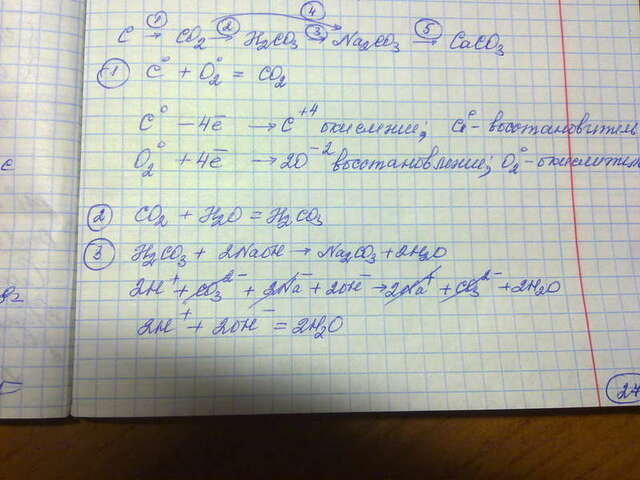 ④
C ①→ CO₂ ②→ H₂CO₃ ③→ Na₂CO₃ ⑤→ CaCO₃
① C⁰ + O₂⁰ = CO₂
C⁰ - 4ē → C⁺⁴ окисление; C⁰ - восстановитель
O₂⁰ + 4ē → 2O⁻² восстановление; O₂⁰ - окислитель
② CO₂ + H₂O = H₂CO₃
③ H₂CO₃ + 2NaOH → Na₂CO₃ + 2H₂O
2H⁺ + CO₃²⁻ + 2Na⁻ + 2OH⁻ → 2Na⁺ + CO₃²⁻ + 2H₂O
2H⁺ + 2OH⁻ = 2H₂O
27